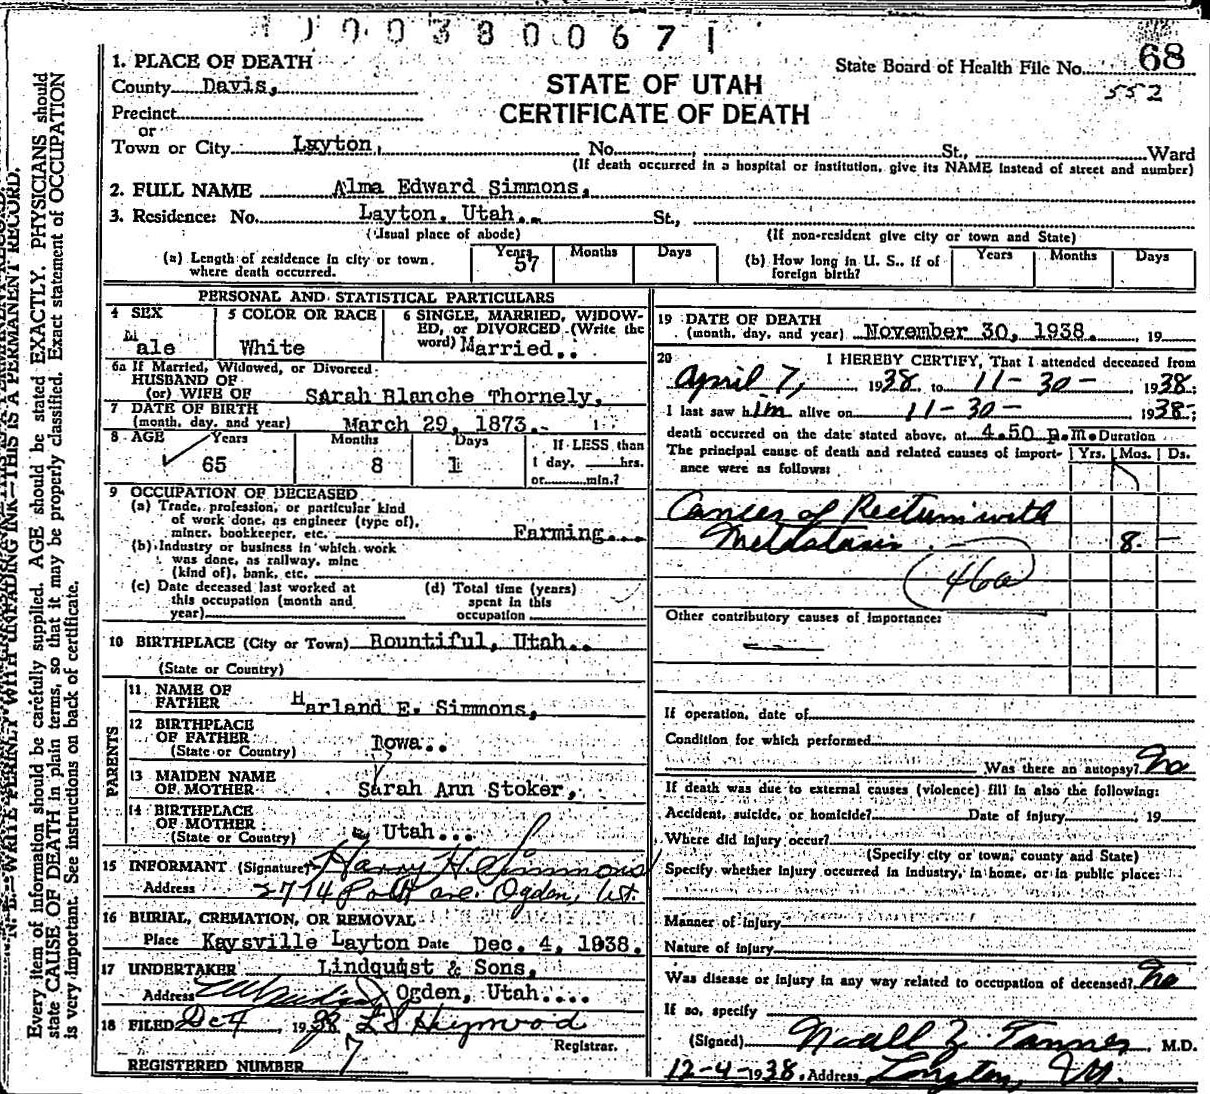 1003800671
68
State Board of Health File No.
552
STATE OF UTAH
CERTIFICATE OF DEATH
1. PLACE OF DEATH
County Davis,
Precinct
or
Town or City Layton, No. St., Ward
(If death occurred in a hospital or institution, give its NAME instead of street and number)
2. FULL NAME Alma Edward Simmons,
3. Residence: No. Layton, Utah.. St.,
(Usual place of abode) (If non-resident give city or town and State)
(a) Length of residence in city or town, where death occurred. Years 57 Months Days
(b) How long in U. S., if of foreign birth? Years Months Days
PERSONAL AND STATISTICAL PARTICULARS
4 SEX Male
5 COLOR OR RACE White
6 SINGLE, MARRIED, WIDOW-
ED, or DIVORCED (Write the
word) Married..
6a If Married, Widowed, or Divorced
HUSBAND OF
(or) WIFE OF Sarah Blanche Thornely,
7 DATE OF BIRTH
(month, day, and year) March 29, 1873.
8 AGE Years 65 Months 8 Days 1
If LESS than
1 day, hrs.
or min.?
9 OCCUPATION OF DECEASED
(a) Trade, profession, or particular kind
of work done, as engineer (type of),
miner, bookkeeper, etc. Farming...
(b) Industry or business in which work
was done, as railway, mine
(kind of), bank, etc.
(c) Date deceased last worked at
this occupation (month and
year)
(d) Total time (years)
spent in this
occupation
10 BIRTHPLACE (City or Town) Bountiful, Utah..
(State or Country)
PARENTS
11 NAME OF
FATHER Harland E. Simmons,
12 BIRTHPLACE
OF FATHER
(State or Country) Iowa..
13 MAIDEN NAME
OF MOTHER Sarah Ann Stoker,
14 BIRTHPLACE
OF MOTHER
(State or Country) Utah...
15 INFORMANT (Signature) Harry H. Simmons
Address 2774 Ave. Ogden, Ut.
16 BURIAL, CREMATION, OR REMOVAL
Place Kaysville Layton Date Dec. 4, 1938.
17 UNDERTAKER Lindquist & Sons,
Address Ogden, Utah....
18 FILED Dec 4, 1938 Heywood
Registrar.
REGISTERED NUMBER 7
19 DATE OF DEATH
(month, day, and year) November 30, 1938. , 19
20 I HEREBY CERTIFY, That I attended deceased from
April 7, 1938, to 11-30- , 1938;
I last saw him alive on 11-30- 1938;
death occurred on the date stated above, at 4.50 p.m. Duration
The principal cause of death and related causes of import-
ance were as follows: Yrs. Mos. Ds.
Cancer of Rectum with
Metastasis. 8 -
46a
Other contributory causes of importance:
If operation, date of
Condition for which performed
Was there an autopsy? No
If death was due to external causes (violence) fill in also the following:
Accident, suicide, or homicide? Date of injury , 19
Where did injury occur?
(Specify city or town, county and State)
Specify whether injury occurred in industry, in home, or in public place:
Manner of injury
Nature of injury
Was disease or injury in any way related to occupation of deceased? No
If so, specify
(Signed) Noall Z. Tanner, M.D.
12-4-1938. Address Layton, Ut.
N. B.—WRITE PLAINLY WITH UNFADING INK—THIS IS A PERMANENT RECORD.
Every item of information should be carefully supplied. AGE should be stated EXACTLY. PHYSICIANS should
state CAUSE OF DEATH in plain terms, so that it may be properly classified. Exact statement of OCCUPATION
is very important. See instructions on back of certificate.